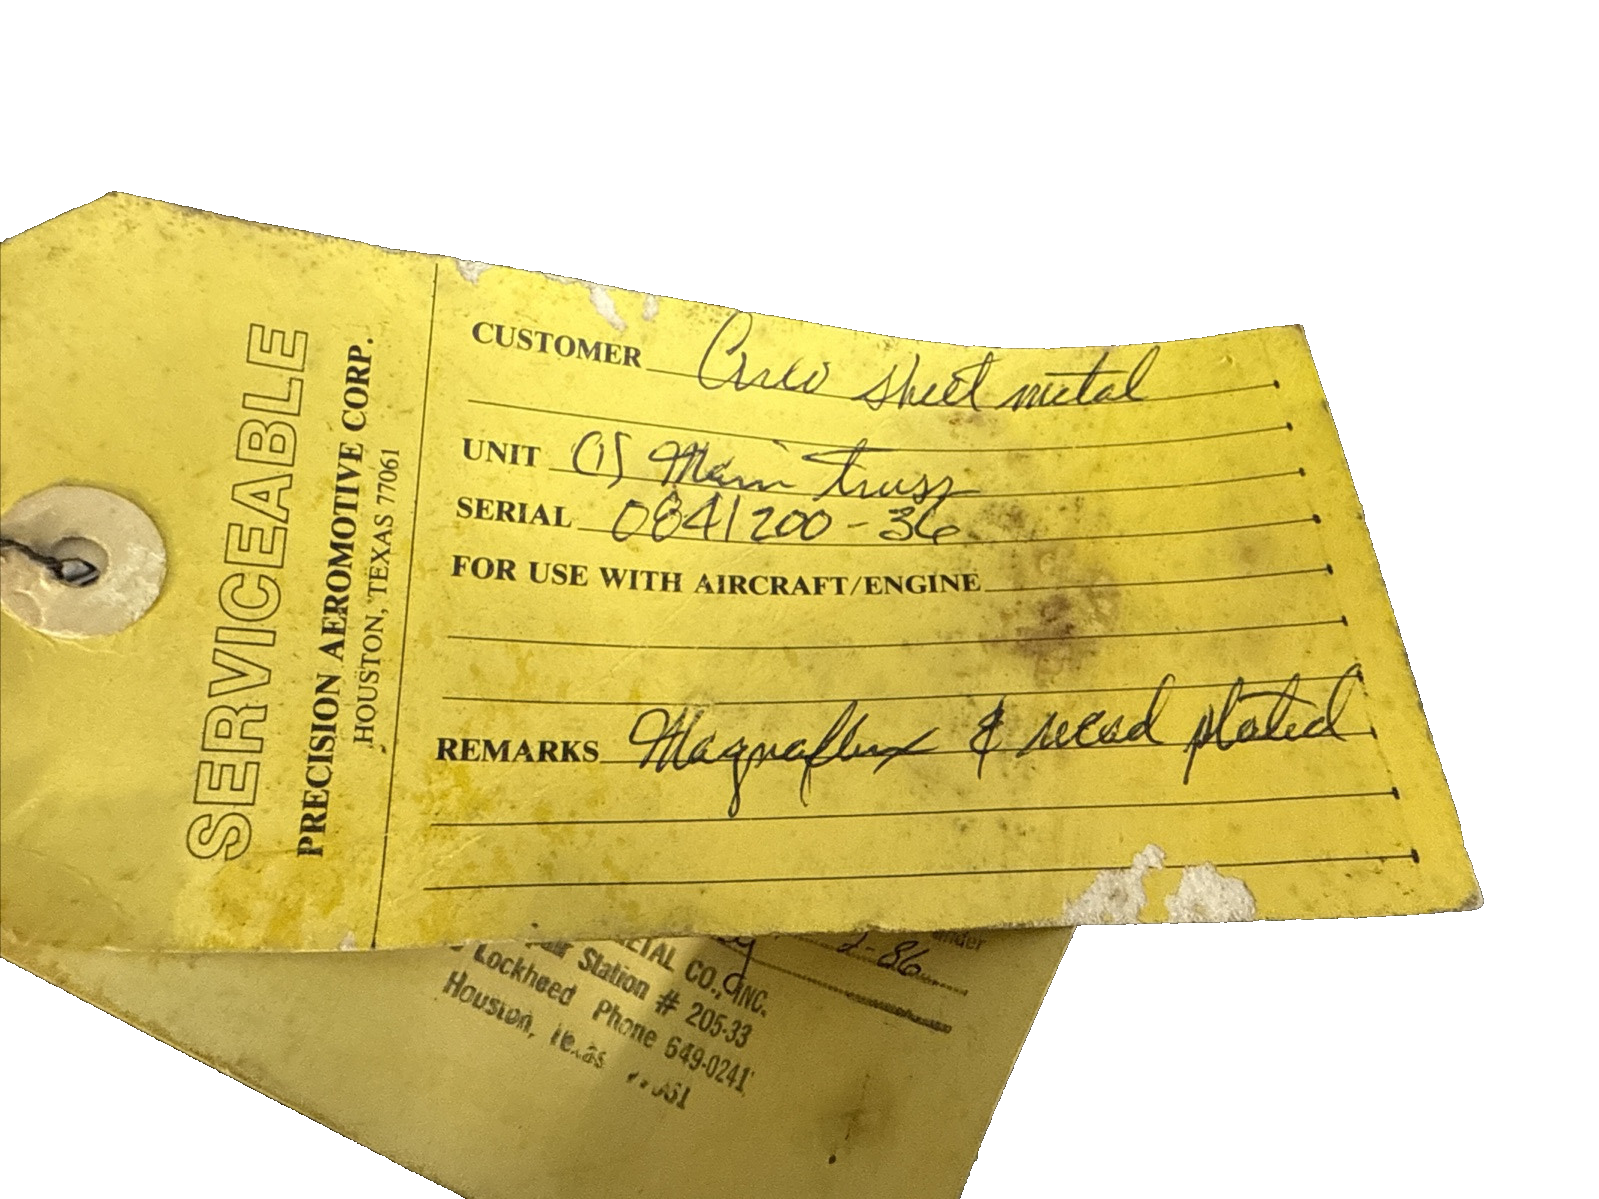 SERVICEABLE
PRECISION AEROMOTIVE CORP.
HOUSTON, TEXAS 77061
CUSTOMER sheet metal
UNIT (1) Main truss
SERIAL 0841200-36
FOR USE WITH AIRCRAFT/ENGINE
REMARKS Magnaflux & recad plated
under
2-86
METAL CO., INC.
Station # 205-33
Lockheed Phone 649-0241
Houston, Texas